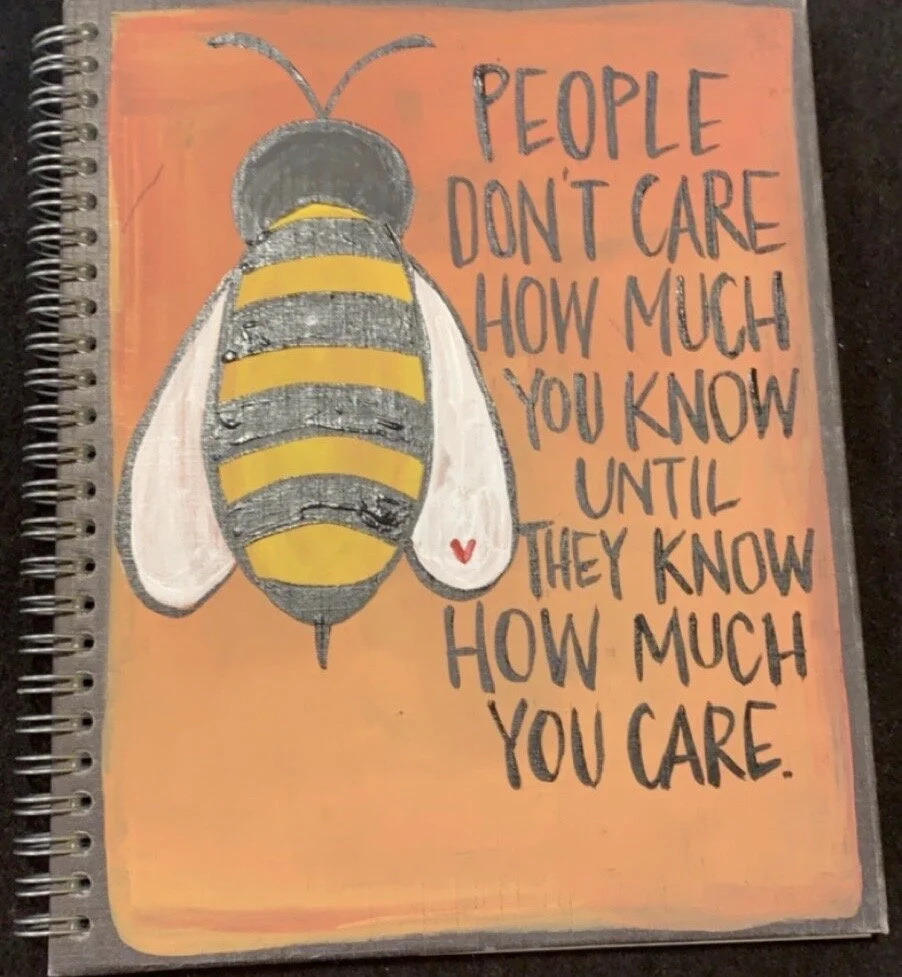 PEOPLE
DON'T CARE
HOW MUCH
YOU KNOW
UNTIL
THEY KNOW
HOW MUCH
YOU CARE.